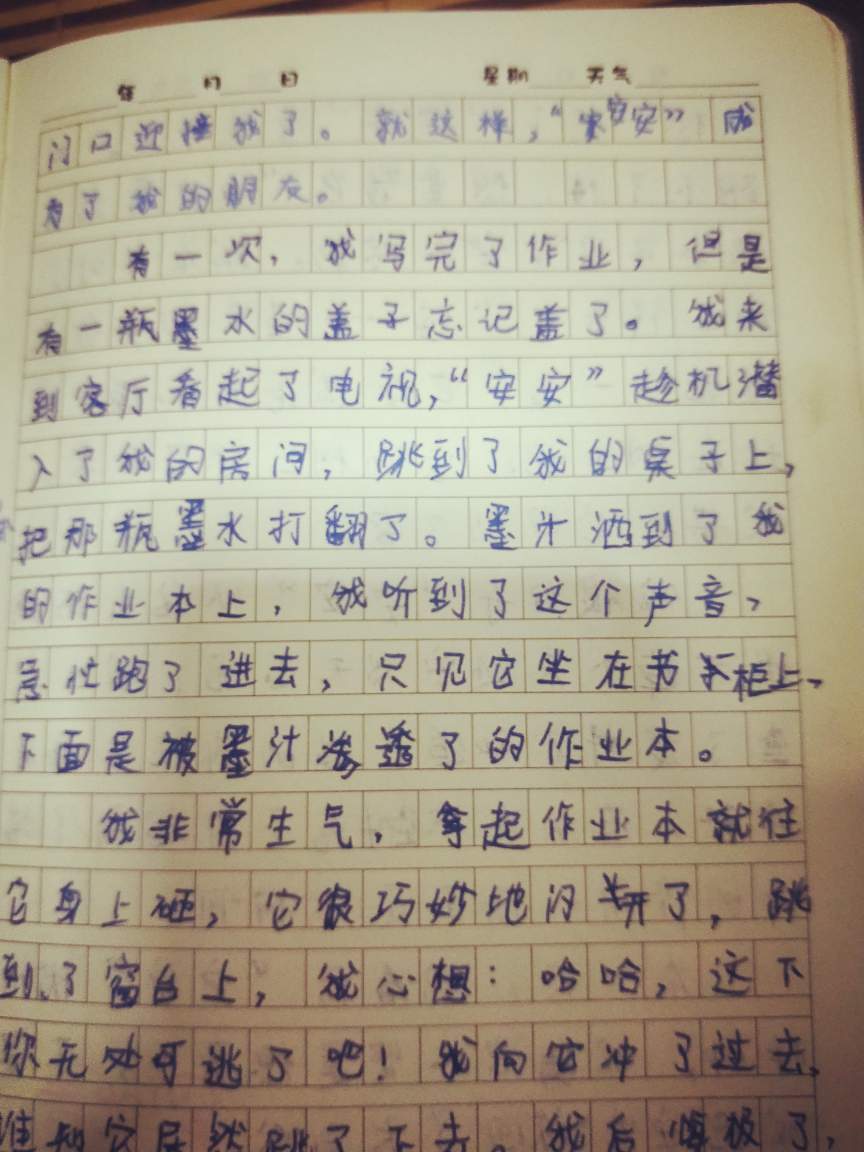 年 月 日 星期 天气
门口迎接我了。就这样，“安安”成
为了我的朋友。
有一次，我写完了作业，但是
有一瓶墨水的盖子忘记盖了。我来
到客厅看起了电视，“安安”趁机潜
入了我的房间，跳到了我的桌子上，
把那瓶墨水打翻了。墨汁洒到了我
的作业本上，我听到了这个声音，
急忙跑了进去，只见它坐在书柜上，
下面是被墨汁渗透了的作业本。
我非常生气，拿起作业本就往
它身上砸，它很巧妙地闪开了，跳
到了窗台上，我心想：哈哈，这下
你无处可逃了吧！我向它冲了过去，
谁知它居然跳了下去。我后悔极了，